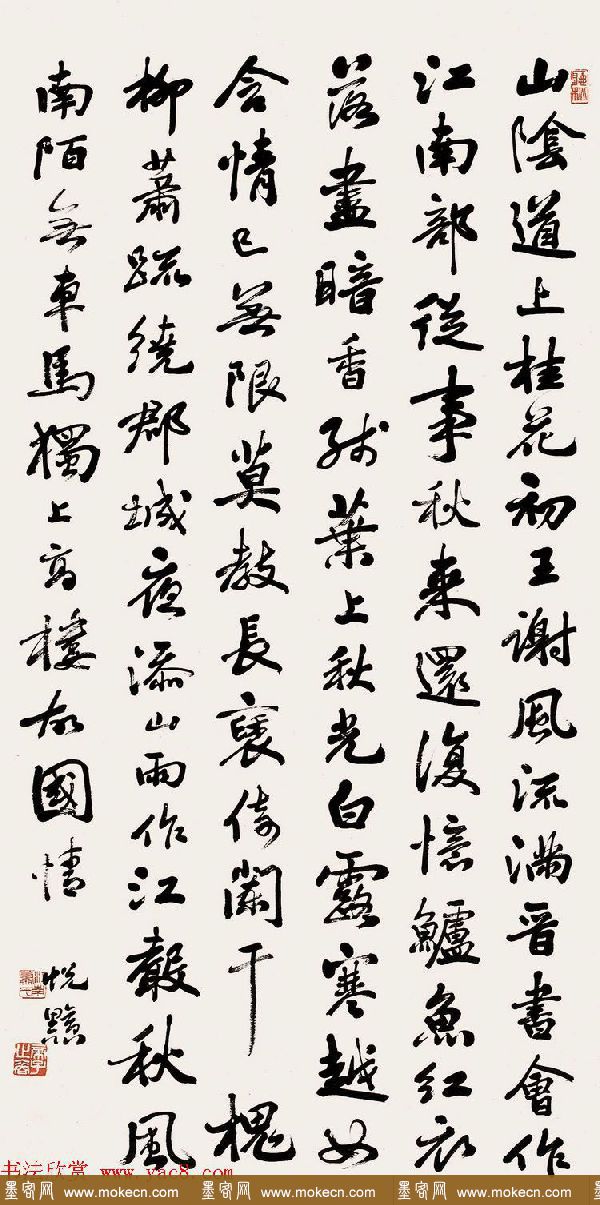 山陰道上桂花初王謝風流滿晉書會作
江南部從事秋來還復憶鱸魚紅衣
落盡暗香殘葉上秋光白露寒越女
含情已無限莫教長褎倚闌干 槐
柳蕭疏繞郡城夜添山雨作江聲秋風
南陌無車馬獨上高樓故國情
书法欣赏 www.yac8.com
墨客网 www.mokecn.com 墨客网 www.mokecn.com 墨客网 www.mokecn.com